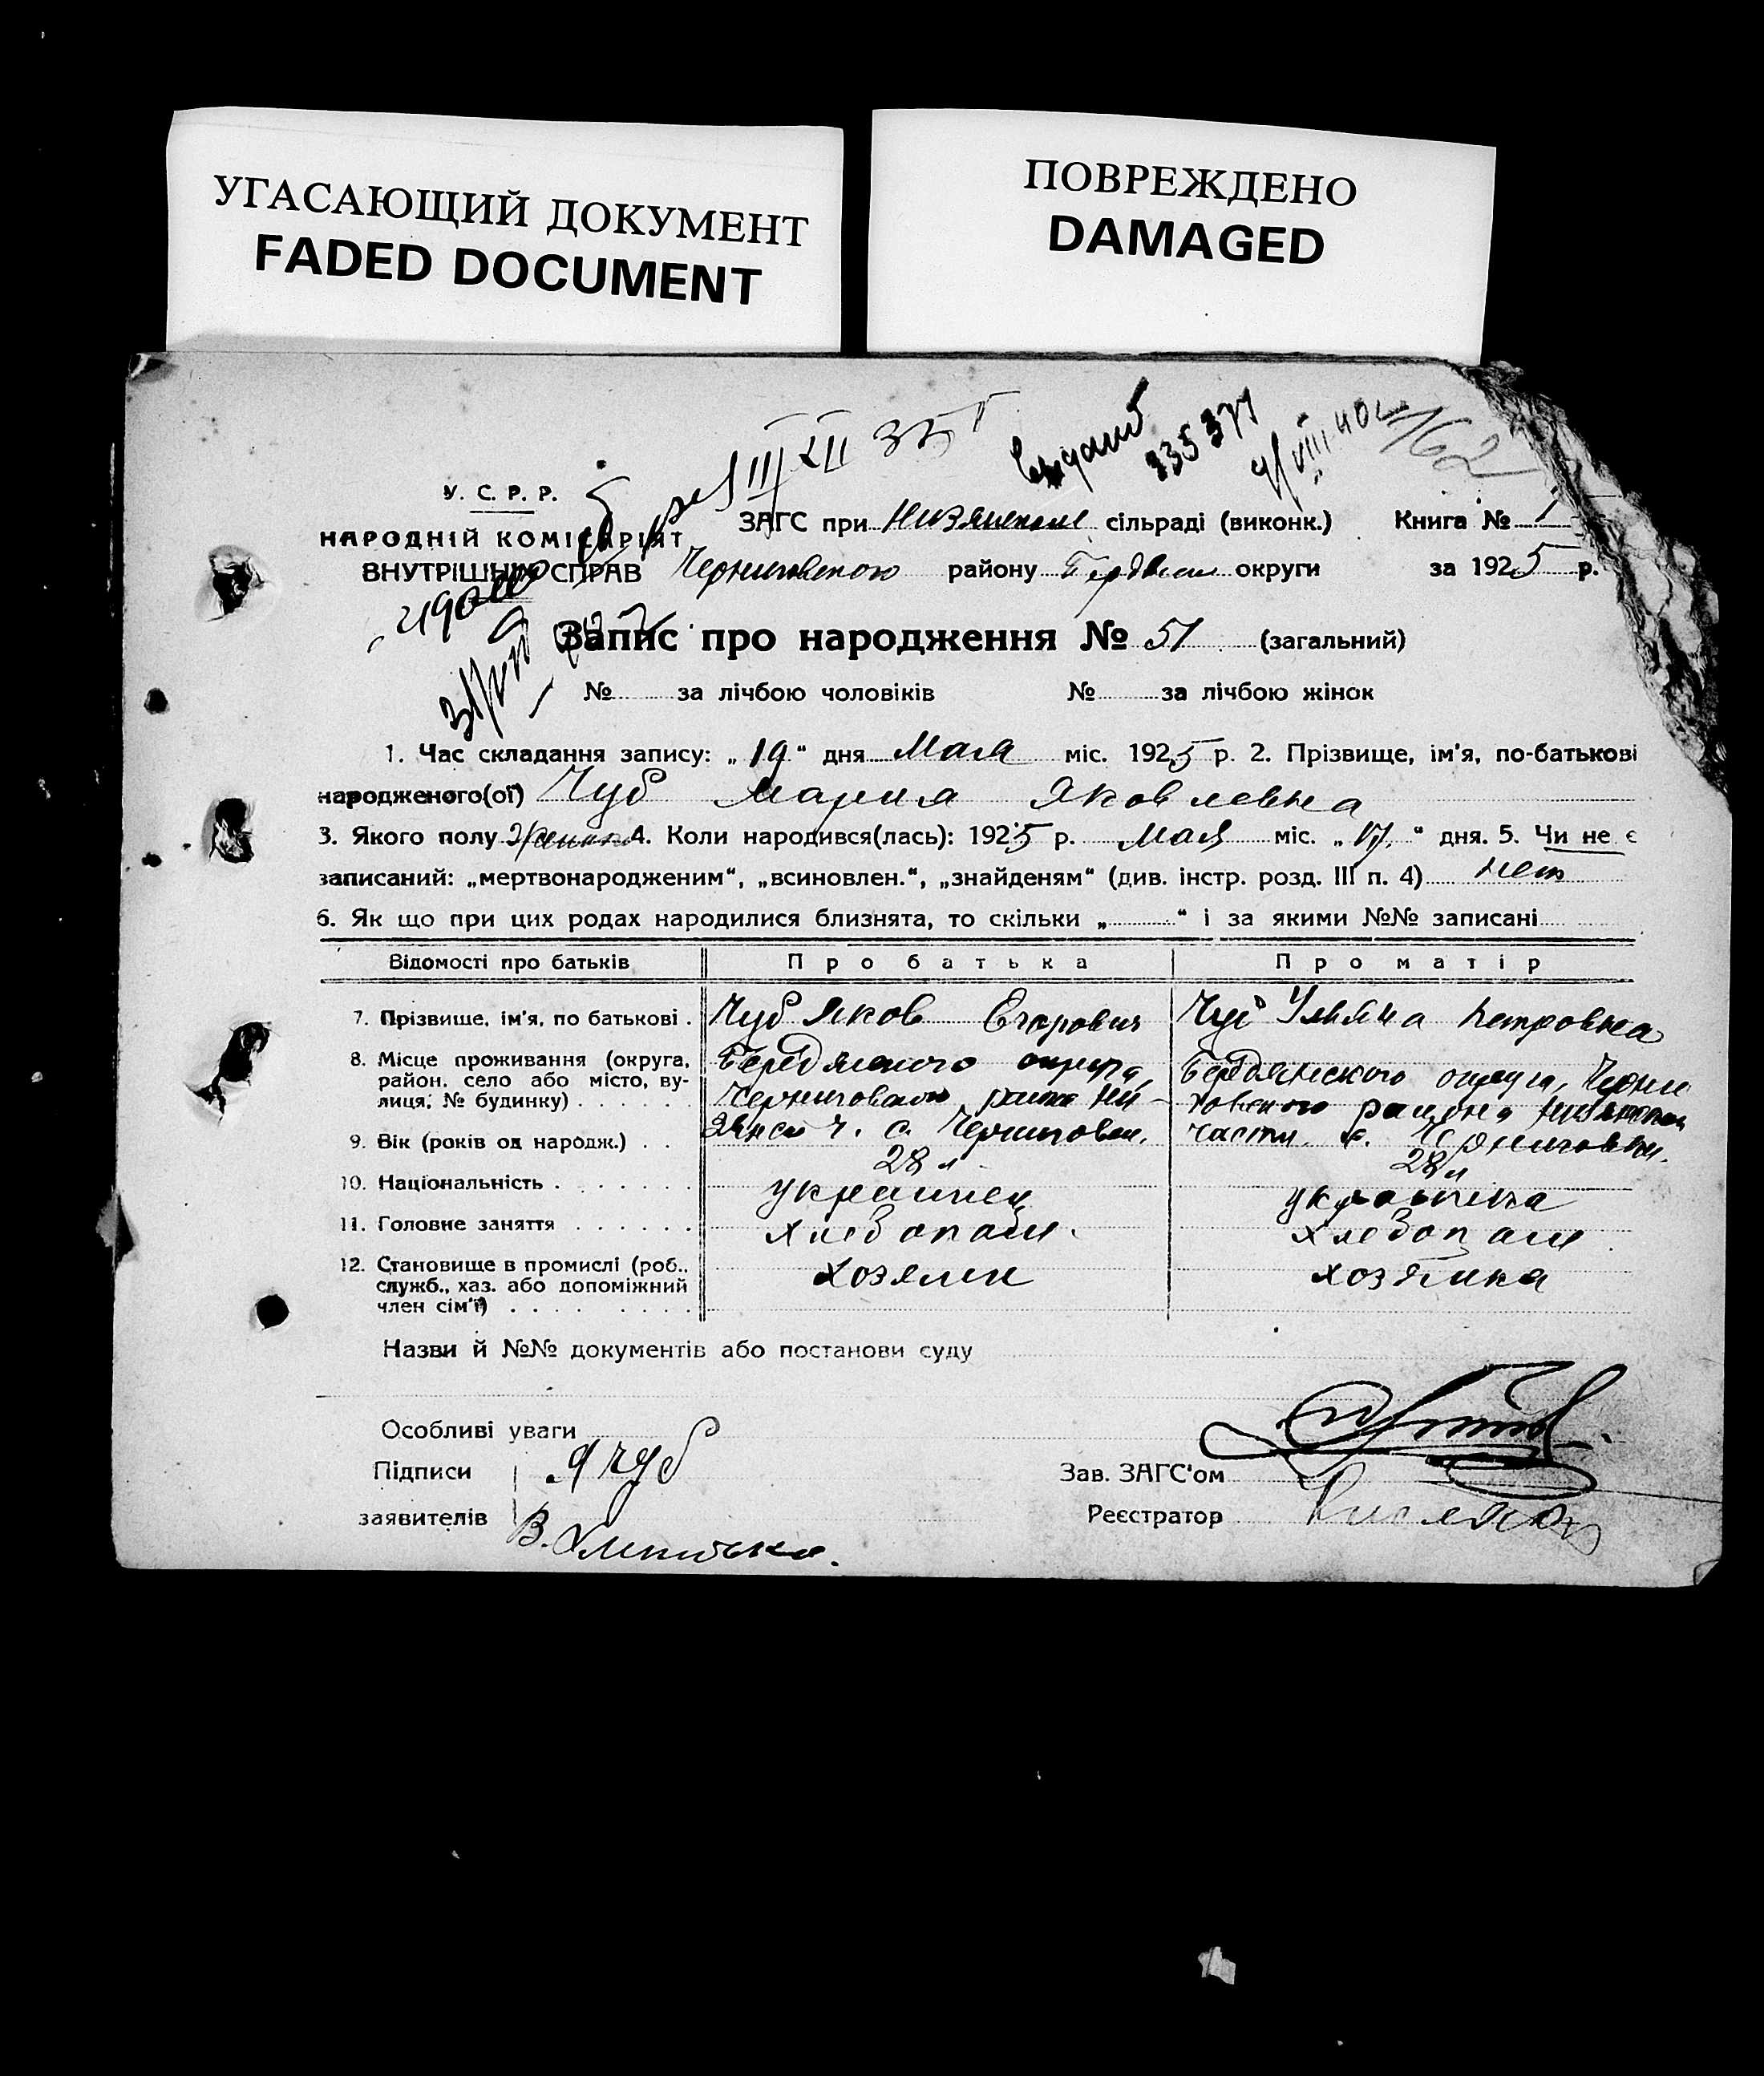 УГАСАЮЩИЙ ДОКУМЕНТ
FADED DOCUMENT
ПОВРЕЖДЕНО
DAMAGED
У. С. Р. Р.
НАРОДНІЙ КОМІСАРІЯТ
ВНУТРІШНІХ СПРАВ
ЗАГС при сільраді (виконк.) Книга № 1
Черниговского району Бердянск округи за 1925 р.
Запис про народження № 51 (загальний)
№ за лічбою чоловіків № за лічбою жінок
1. Час складання запису: „19“ дня Мая міс. 1925 р. 2. Прізвище, ім'я, по-батькові
народженого(ої) Чуб Мария Яковлевна
3. Якого полу 4. Коли народився(лась): 1925 р. Мая міс. „17.“ дня. 5. Чи не є
записаний: „мертвонародженим“, „всиновлен.“, „знайденям“ (див. інстр. розд. III п. 4) нет
6. Як що при цих родах народилися близнята, то скільки „ “ і за якими №№ записані
Відомості про батьків Про батька Про матір
7. Прізвище, ім'я, по батькові . Чуб Яков Егорович Чуб Ульяна Петровна
8. Місце проживання (округа, район, село або місто, вулиця, № будинку) . . . . . .
Бердянского округа,
Черниговского района Ни-
зянск ч. с. Черниговки.
Бердянского округа, Черни
говского района Низянской
части с. Черниговки.
9. Вік (років од народж.) . . 28 л 28 л
10. Національність . . . . . . . украинец украинка
11. Головне заняття . . . . . . хлебопаш. хлебопаш
12. Становище в промислі (роб., служб., хаз. або допоміжний член сім'ї) . . . . . . . . хозяин хозяйка
Назви й №№ документів або постанови суду
Особливі уваги
Підписи Я Чуб
заявителів В.
Зав. ЗАГС'ом
Реєстратор